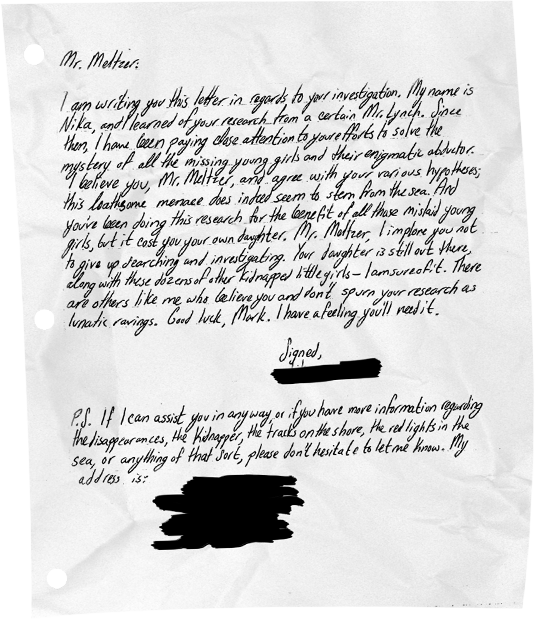 Mr. Meltzer:
I am writing you this letter in regards to your investigation. My name is
Nika, and I learned of your research from a certain Mr. Lynch. Since
then, I have been paying close attention to your efforts to solve the
mystery of all the missing young girls and their enigmatic abductor.
I believe you, Mr. Meltzer, and agree with your various hypotheses;
this loathsome menace does indeed seem to stem from the sea. And
you've been doing this research for the benefit of all those mislaid young
girls, but it cost you your own daughter. Mr. Meltzer, I implore you not
to give up searching and investigating. Your daughter is still out there,
along with these dozens of other kidnapped little girls – I am sure of it. There
are others like me who believe you and don't spurn your research as
lunatic ravings. Good luck, Mark. I have a feeling you'll need it.
Signed,
P.S. If I can assist you in any way or if you have more information regarding
the disappearances, the kidnapper, the tracks on the shore, the red lights in the
sea, or anything of that sort, please don't hesitate to let me know. My
address is: